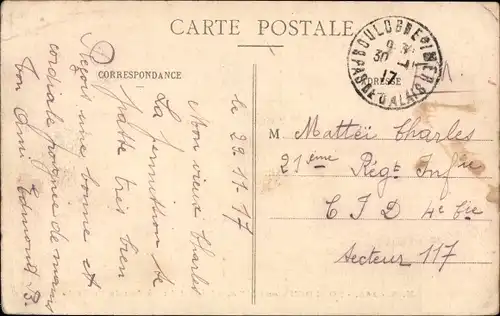 CARTE POSTALE
CORRESPONDANCE
ADRESSE
BOULOGNE S MER
9
30 - 11
17
PAS DE CALAIS
le 29-11-17
Mon vieux Charles
La permission se
passe très bien
Reçois une bonne et
cordiale poignée de main
Ton Ami Edmond B.
M. Mattéi Charles
21ème Régt Infrie
C I D 4e Cie
Secteur 117